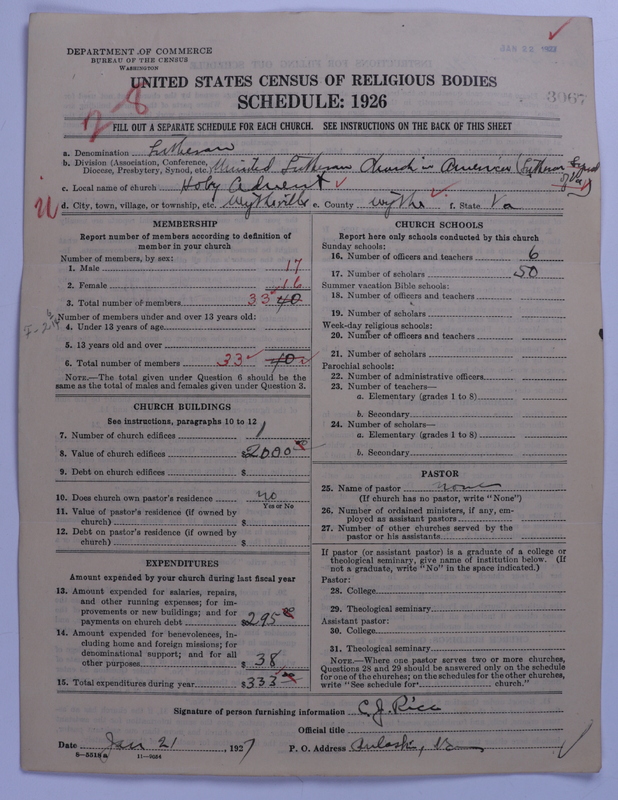 DEPARTMENT OF COMMERCE
BUREAU OF THE CENSUS
WASHINGTON
UNITED STATES CENSUS OF RELIGIOUS BODIES
SCHEDULE: 1926
3067
FILL OUT A SEPARATE SCHEDULE FOR EACH CHURCH. SEE INSTRUCTIONS ON THE BACK OF THIS SHEET
a. Denomination Lutheran
b. Division (Association, Conference, Diocese, Presbytery, Synod, etc.) United Lutheran Church in America (Lutheran Synod of Va)
c. Local name of church Holy Advent
d. City, town, village, or township, etc. Wytheville e. County Wythe f. State Va
MEMBERSHIP
Report number of members according to definition of
member in your church
Number of members, by sex:
1. Male 17
2. Female 16
3. Total number of members 33 40
Number of members under and over 13 years old:
4. Under 13 years of age
5. 13 years old and over
6. Total number of members 33 40
NOTE.—The total given under Question 6 should be the
same as the total of males and females given under Question 3.
CHURCH BUILDINGS
See instructions, paragraphs 10 to 12
7. Number of church edifices 1
8. Value of church edifices $2000
9. Debt on church edifices $
10. Does church own pastor's residence no
Yes or No
11. Value of pastor's residence (if owned by
church) $
12. Debt on pastor's residence (if owned by
church) $
EXPENDITURES
Amount expended by your church during last fiscal year
13. Amount expended for salaries, repairs,
and other running expenses; for im-
provements or new buildings; and for
payments on church debt $295
14. Amount expended for benevolences, in-
cluding home and foreign missions; for
denominational support; and for all
other purposes $38
15. Total expenditures during year $333
CHURCH SCHOOLS
Report here only schools conducted by this church
Sunday schools:
16. Number of officers and teachers 6
17. Number of scholars 50
Summer vacation Bible schools:
18. Number of officers and teachers
19. Number of scholars
Week-day religious schools:
20. Number of officers and teachers
21. Number of scholars
Parochial schools:
22. Number of administrative officers
23. Number of teachers—
a. Elementary (grades 1 to 8)
b. Secondary
24. Number of scholars—
a. Elementary (grades 1 to 8)
b. Secondary
PASTOR
25. Name of pastor none
(If church has no pastor, write "None")
26. Number of ordained ministers, if any, em-
ployed as assistant pastors
27. Number of other churches served by the
pastor or his assistants
If pastor (or assistant pastor) is a graduate of a college or
theological seminary, give name of institution below. (If
not a graduate, write "No" in the space indicated.)
Pastor:
28. College
29. Theological seminary
Assistant pastor:
30. College
31. Theological seminary
NOTE.—Where one pastor serves two or more churches,
Questions 28 and 29 should be answered only on the schedule
for one of the churches; on the schedules for the other churches,
write "See schedule for church."
Signature of person furnishing information C. J. Rice
Official title
Date Jan 21, 1927 P. O. Address Pulaski, Va
8—5518a 11—9034